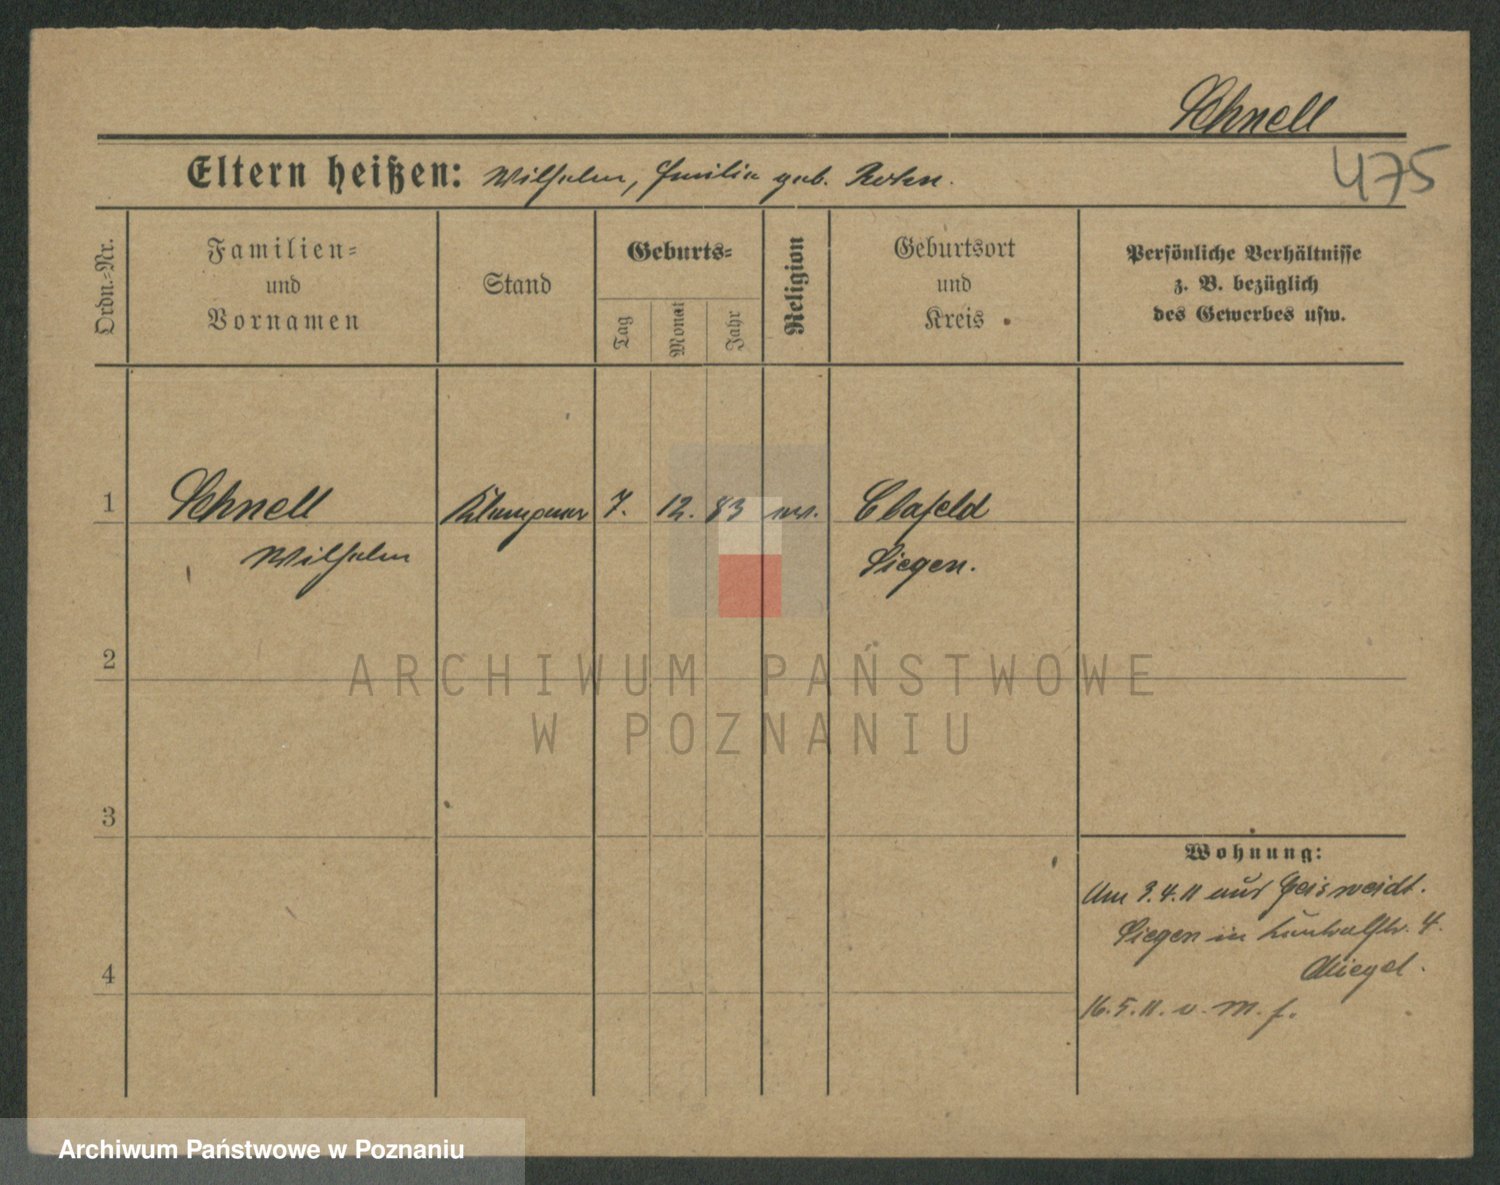 Schnell
475
Eltern heißen: Wilhelm, Emilie geb.
Ordn.-Nr.
Familien-
und
Vornamen
Stand
Geburts-
Tag
Monat
Jahr
Religion
Geburtsort
und
Kreis
Persönliche Verhältnisse
z. B. bezüglich
des Gewerbes usw.
1
Schnell
Klempner
7.
12.
83
ev.
Clafeld
Wilhelm
Siegen.
2
ARCHIWUM PAŃSTWOWE
W POZNANIU
3
Wohnung:
Am 3.4.11 aus Geisweidt.
Siegen in 4.
4
16.5.11. v. M. f.
Archiwum Państwowe w Poznaniu